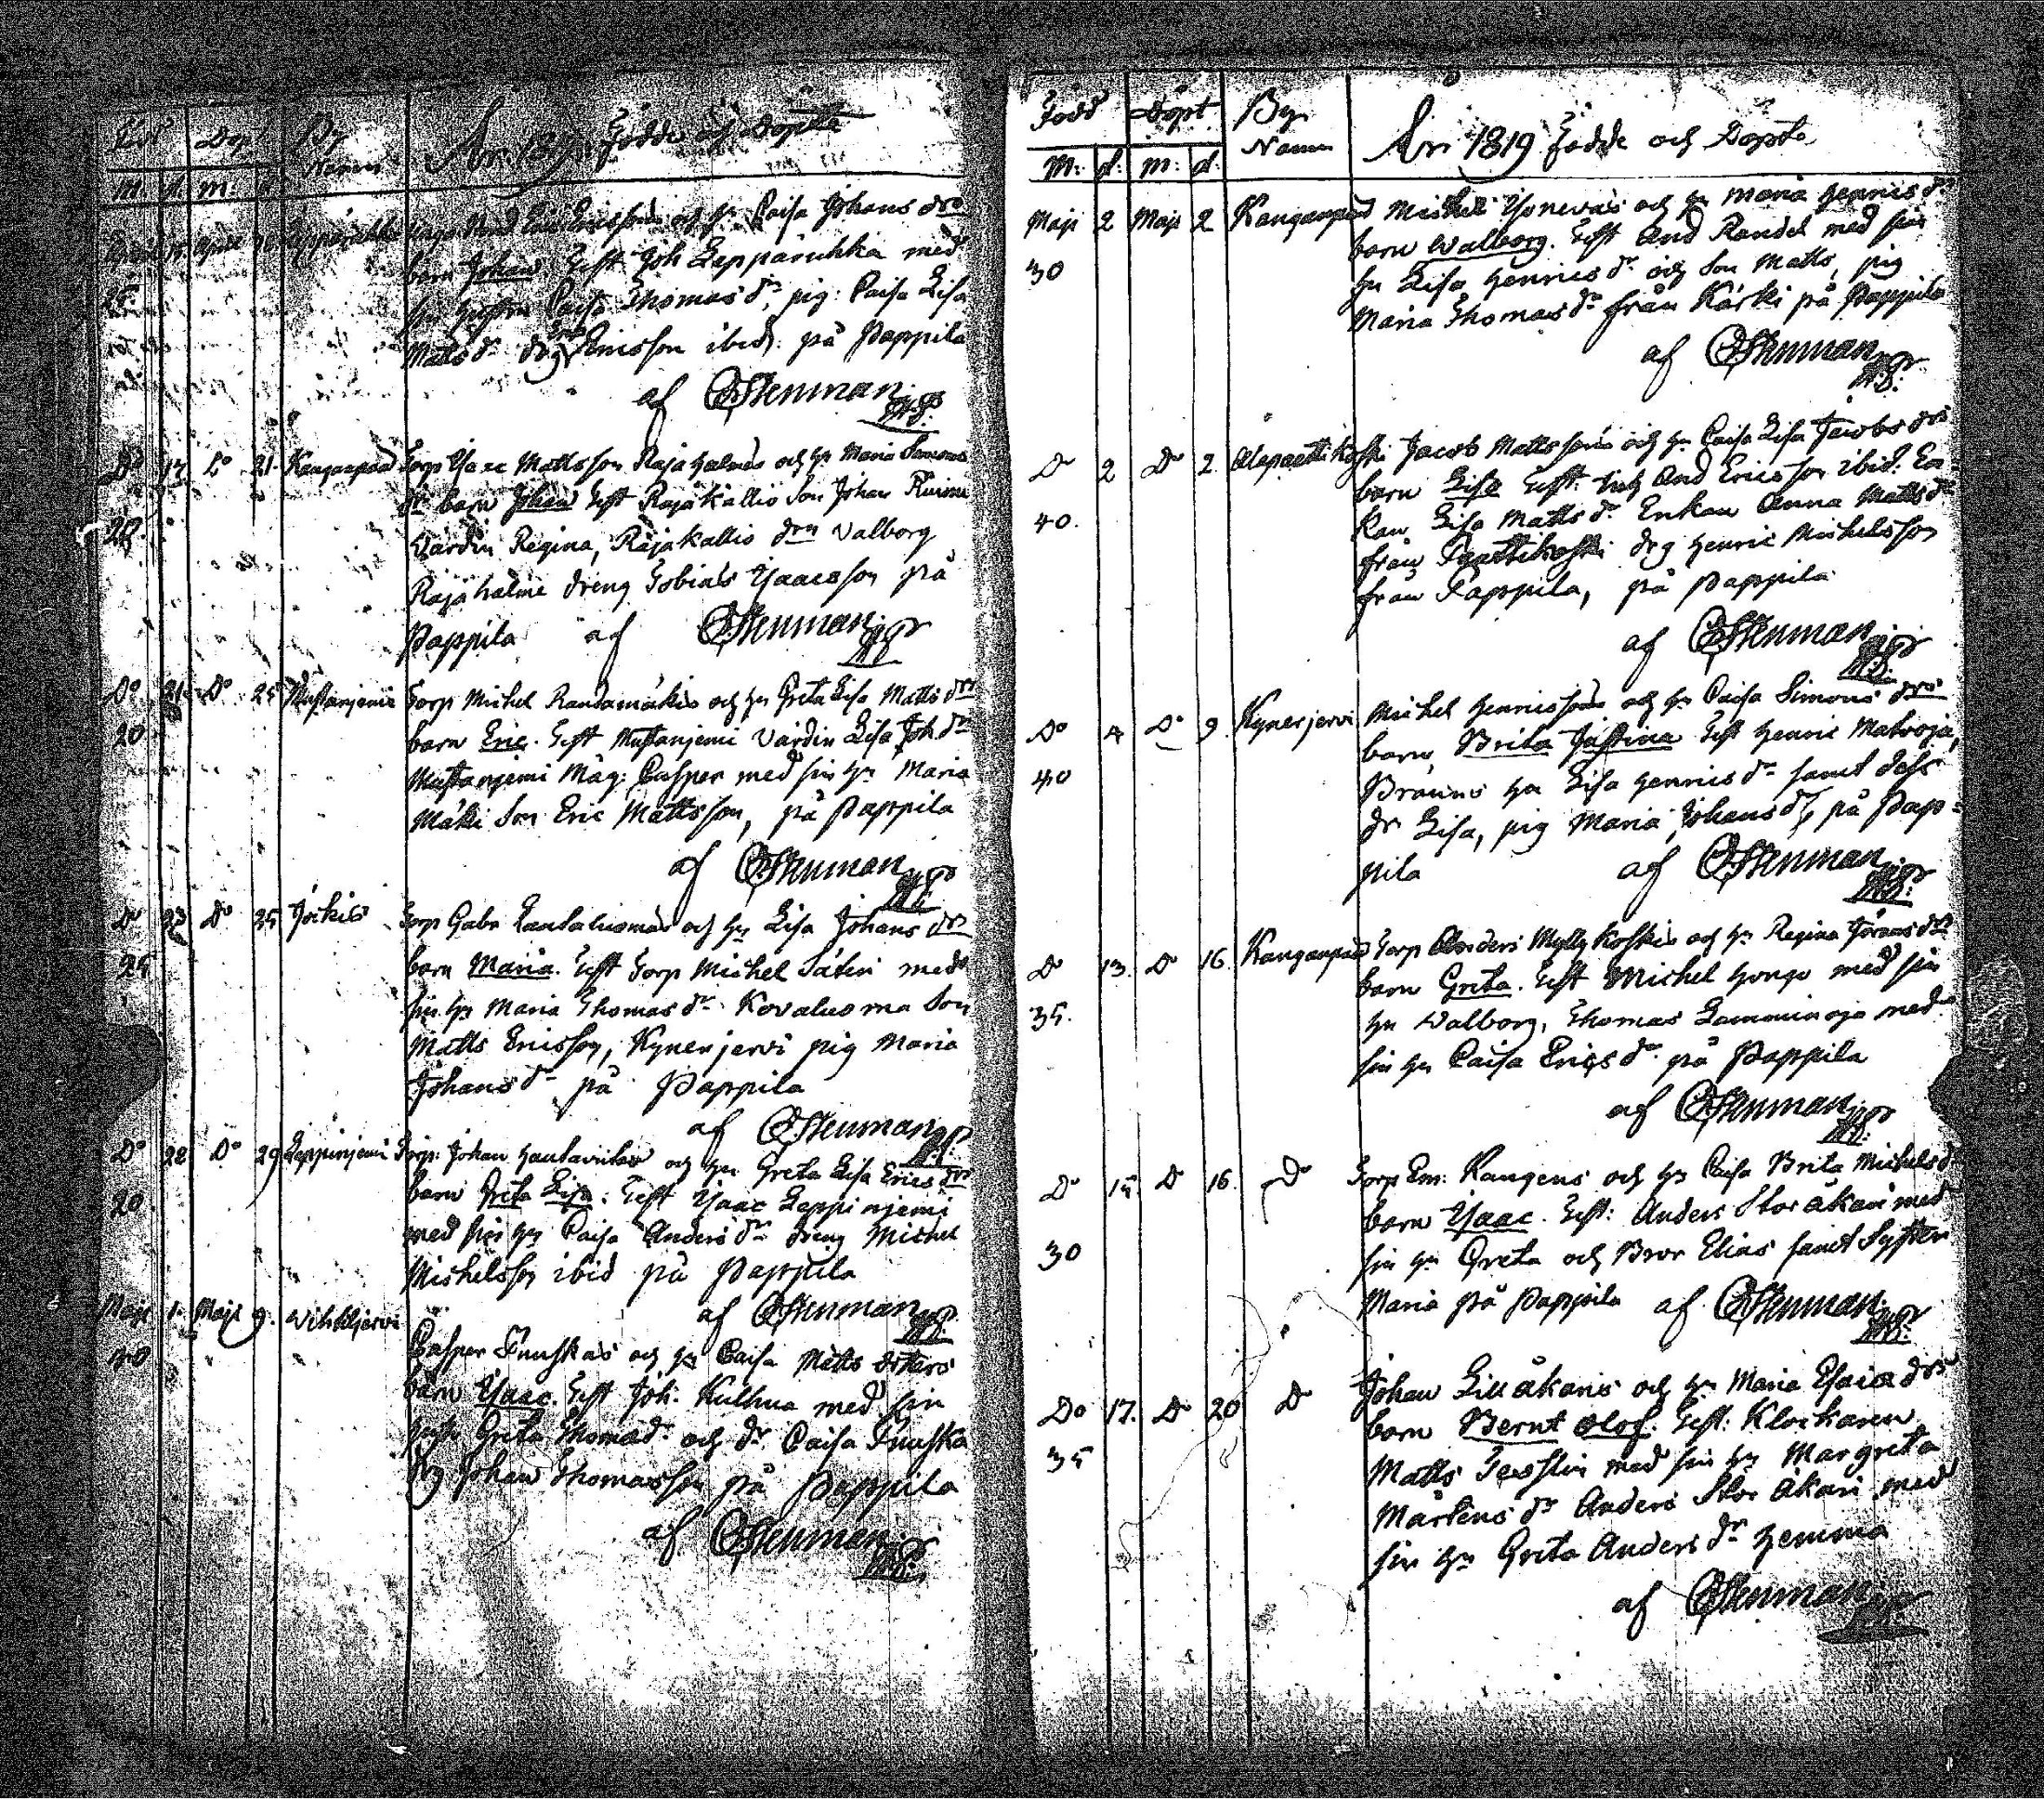 Född Döpt By Namn År 1819 Födde och Döpte
M. d. M. d.
April April Leppäruhka Eric Ericsson och hu Caisa Johans dra
barn Johan Test Joh Leppäruhka med
25 sin hustru Caisa Thomas dr, pig: Caisa Lisa
Matts dr drg Ericsson ibid. på Pappila
af CGStenman
Do 17 Do 21 Kanganpää Torp Isaac Mattsson Rajahalmes och hu Maria Simons
dr barn Johan Test Rajakallio Son Johan
Värdin Regina, Rajakallio drn Valborg
Rajahalme dreng Tobias Isaacsson på
Pappila af CGStenman
Do 21 Do 25 Mustanjemi Torp Michel Randamäkis och hu Greta Lisa Matts dr
20 barn Eric. Test Mustanjemi Värdin Lisa Joh dr
Mustanjemi Måg: Casper med sin hu Maria
Mäki Son Eric Mattsson, på Pappila
af CGStenman
Do 23 Do 25 Jockis Torp Gabr Rantaluomas och hu Lisa Johans dr
25 barn Maria. Test Torp Michel Säteri med
sin hu Maria Thomas dr Kovaluoma Son
Matts Ericsson, Kynerjervi pig Maria
Johans dr på Pappila
af CGStenman
Do 28 Do 29 Leppinjemi Torp: Johan Hautaviitas och hu Greta Lisa Erics dr
20 barn Greta Lisa. Test Isaac Leppinjemi
med sin hu Caisa Anders dr dreng Michel
Michelsson ibid på Pappila
af CGStenman
Maji 1. Maji 9. Wihteljervi
Casper Fruskas och hu Caisa Matts doters
30 barn Isaac. Test Joh. Kulhua med sin
hustr Greta Thomæ dr och dr Caisa Fruska
drg Johan Thomasson på Pappila
af CGStenman
Född Döpt By Namn År 1819 Födde och Döpte
M: d: M: d:
Maji 2 Maji 2 Kanganpää Michel Yonevas och hu Maria Henrics dr
barn Walborg. Test And Randel med sin
30 hu Lisa Henrics dr och Son Matts, pig
Maria Thomas dr från Kärki på Pappila
af CGStenman
Do 2 Do 2 Alapaettikoski Jacob Mattssons och hu Caisa Lisa Jacobs dr
barn Lisa Test. And Ericsson ibid: En-
40. kan Lisa Matts dr Enkan Anna Matts dr
från Paettikoski drg Henric Michelsson
från Pappila, på Pappila
af CGStenman
Do 4 Do 9. Kynerjervi Michel Henricssons och hu Caisa Simons dr
barn Brita Justina Test Henric Matvoja,
40 Brauns hu Lisa Henrics dr samt dess
dr Lisa, pig Maria Johans dr, på Pap-
pila af CGStenman
Do 13. Do 16. Kanganpää Torp Anders Myllykoskis och hu Regina Jörans dr
barn Greta. Test Michel Hongo med sin
35. hu Walborg, Thomas Lamminoja med
sin hu Caisa Erics dr på Pappila
af CGStenman
Do 15. Do 16. Do Torp Em: Kangens och hu Caisa Brita Michels dr
barn Isaac. Test: Anders Storåkari med
30 sin hu Greta och Bror Elias samt Syster
Maria på Pappila af CGStenman
Do 17. Do 20 Do Johan Lillåkaris och hu Maria Esaiæ dr
barn Bernt Olof. Test: Klockaren
35 Matts Tesslin med sin hu Margreta
Mårtens dr Anders Storåkari med
sin hu Greta Anders dr hemma
af CGStenman